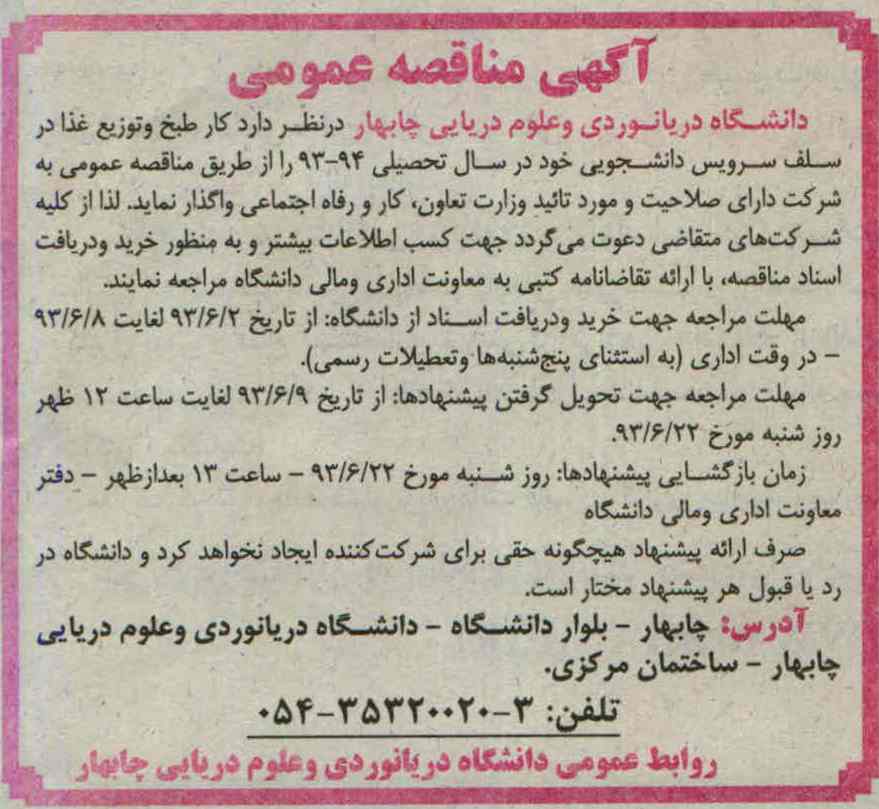 آگهی مناقصه عمومی
دانشگاه دریانوردی وعلوم دریایی چابهار درنظر دارد کار طبخ وتوزیع غذا در
سلف سرویس دانشجویی خود در سال تحصیلی ۹۴-۹۳ را از طریق مناقصه عمومی به
شرکت دارای صلاحیت و مورد تائید وزارت تعاون، کار و رفاه اجتماعی واگذار نماید. لذا از کلیه
شرکت‌های متقاضی دعوت می‌گردد جهت کسب اطلاعات بیشتر و به منظور خرید ودریافت
اسناد مناقصه، با ارائه تقاضانامه کتبی به معاونت اداری ومالی دانشگاه مراجعه نمایند.
مهلت مراجعه جهت خرید ودریافت اسناد از دانشگاه: از تاریخ ۹۳/۶/۲ لغایت ۹۳/۶/۸
– در وقت اداری (به استثنای پنج‌شنبه‌ها وتعطیلات رسمی).
مهلت مراجعه جهت تحویل گرفتن پیشنهادها: از تاریخ ۹۳/۶/۹ لغایت ساعت ۱۲ ظهر
روز شنبه مورخ ۹۳/۶/۲۲.
زمان بازگشایی پیشنهادها: روز شنبه مورخ ۹۳/۶/۲۲ – ساعت ۱۳ بعدازظهر – دفتر
معاونت اداری ومالی دانشگاه
صرف ارائه پیشنهاد هیچگونه حقی برای شرکت‌کننده ایجاد نخواهد کرد و دانشگاه در
رد یا قبول هر پیشنهاد مختار است.
آدرس: چابهار – بلوار دانشگاه – دانشگاه دریانوردی وعلوم دریایی
چابهار – ساختمان مرکزی.
تلفن: ۳-۳۵۳۲۰۰۲۰-۰۵۴
روابط عمومی دانشگاه دریانوردی وعلوم دریایی چابهار